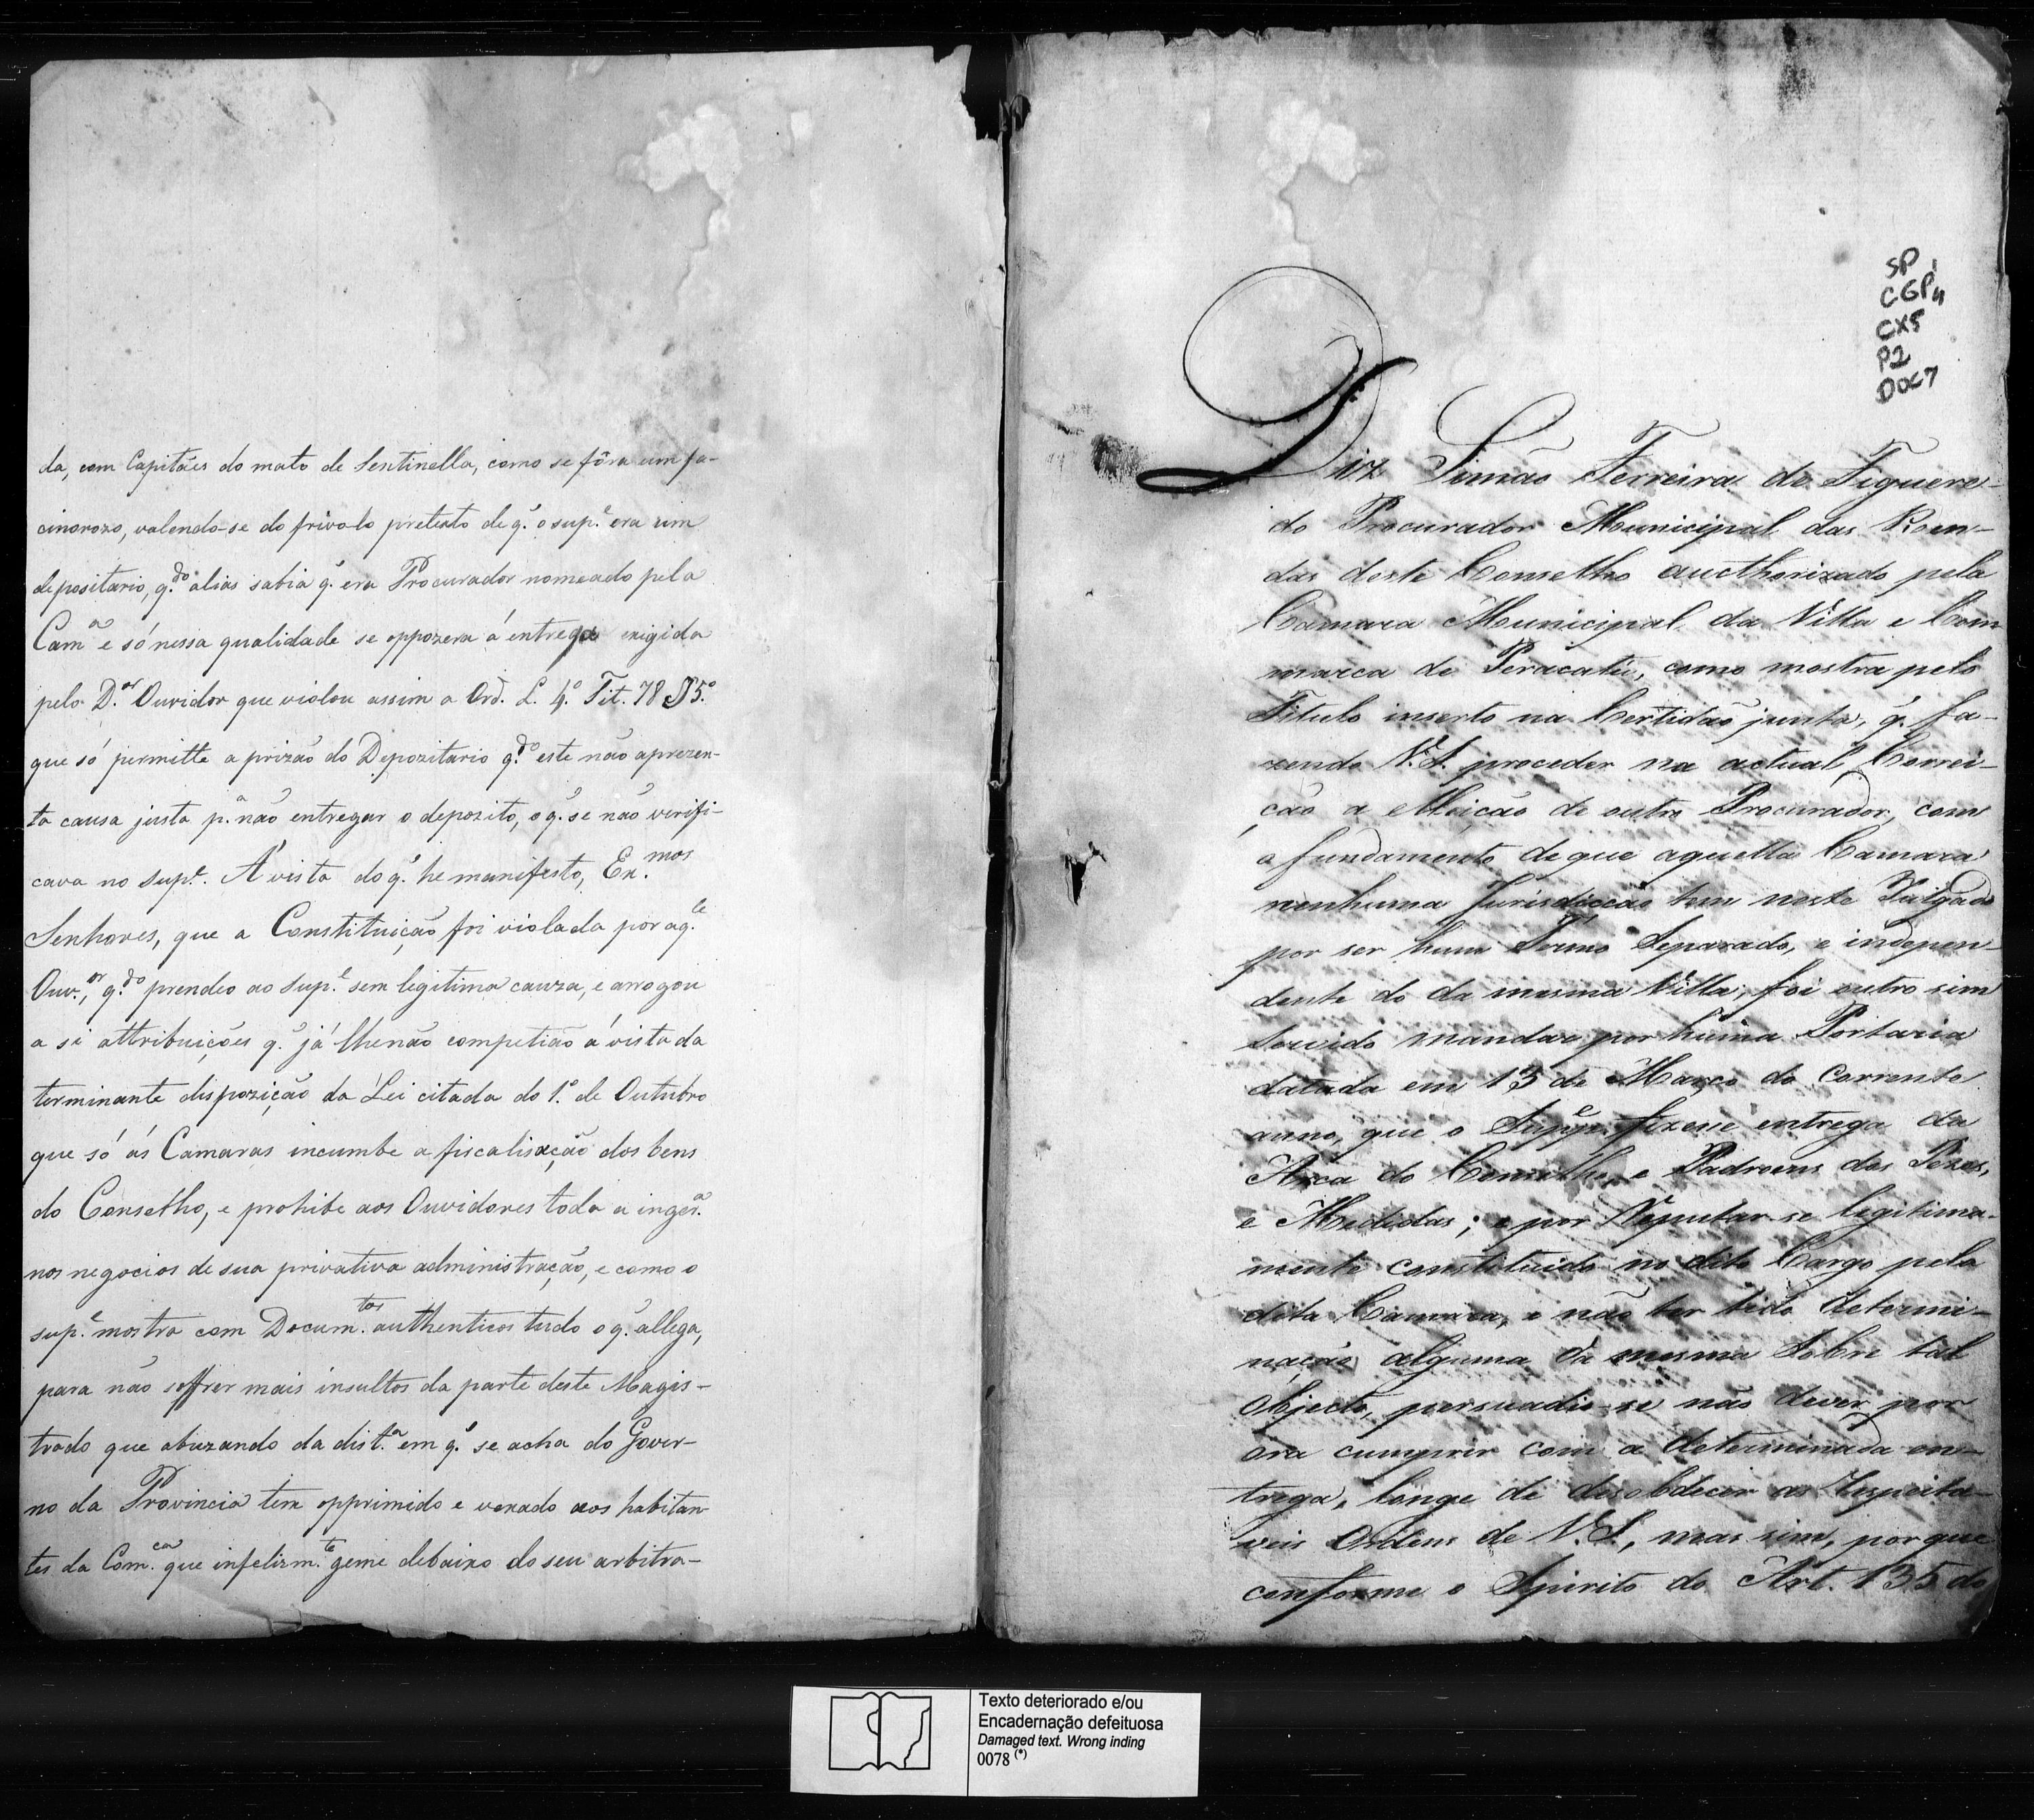 da, com Capitães do mato de Sentinella, como se fôra um fa-
cinorozo, valendo-se do frivolo pretexto de q̃. o sup.e era um
depositario, q.do alias sabia q̃. era Procurador nomeado pela
Cam.a e só nessa qualidade se oppozera á entrega exigida
pelo D.or Ouvidor que violou assim a Ord. L. 4.º Tit. 78 § 5.º
que só permitte a prizão do Depozitario q.do este não aprezen-
ta causa justa p.a não entregar o depozito, o q̃. se não verifi-
cava no Sup.e. Á vista do q̃. he manifesto, Ex.mos
Senhores, que a Constituição foi violada por aq.le
Ouv.or, q.do prendeo ao Sup.e sem legitima cauza, e arrogou
a si attribuições q̃. já lhe não competião á vista da
terminante dispozição da Lei citada do 1.º de Outubro
que só ás Camaras incumbe a fiscalisação dos bens
do Conselho, e prohibe aos Ouvidores toda a inger.a
nos negocios de sua privativa administração, e como o
sup.e mostra com Docum.tos authenticos tudo o q̃. allega,
para não soffrer mais insultos da parte deste Magis-
trado que abuzando da dist.a em q̃. se acha do Gover-
no da Provincia tem opprimido e vexado aos habitan
tes da Com.ca que infelizm.te geme debaixo do seu arbitra-
SP
CGP,
CX5
P2
DOC7
Diz Simão Ferreira de Figuere-
do Procurador Municipal das Ren-
das deste Conselho aucthorizado pela
Camara Municipal da Villa e Com
marca de Peracatú, como mostra pelo
Titulo inserto na Certidão junta, q̃. fa-
zendo V.S. proceder na actual Correi-
ção a elleição de outro Procurador, com
o fundamento de que aquella Camara
nenhuma Jurisdicção tem neste Julgado
por ser hum Termo Separado, e indepen-
dente do da mesma Villa, foi outro sim
Servido mandar por huma Portaria
datada em 13 de Março do Corrente
anno, que o Supp.e fizesse entrega da
Arca do Conselho, e Padroens dos Pezos,
e Medidas; e por Reputar-se legitima-
mente constituido no dito Cargo pela
dita Camara, e não ter tido determi-
nação alguma da mesma Sobre tal
Objecto, persuadio-se não dever por
ora cumprir com a determinada en-
trega, longe de desobdecer as Respeita-
veis Ordens de V.S., mas sim, porque
conforme o Spirito do Art. 135 do
Texto deteriorado e/ou
Encadernação defeituosa
Damaged text. Wrong inding
0078 (*)